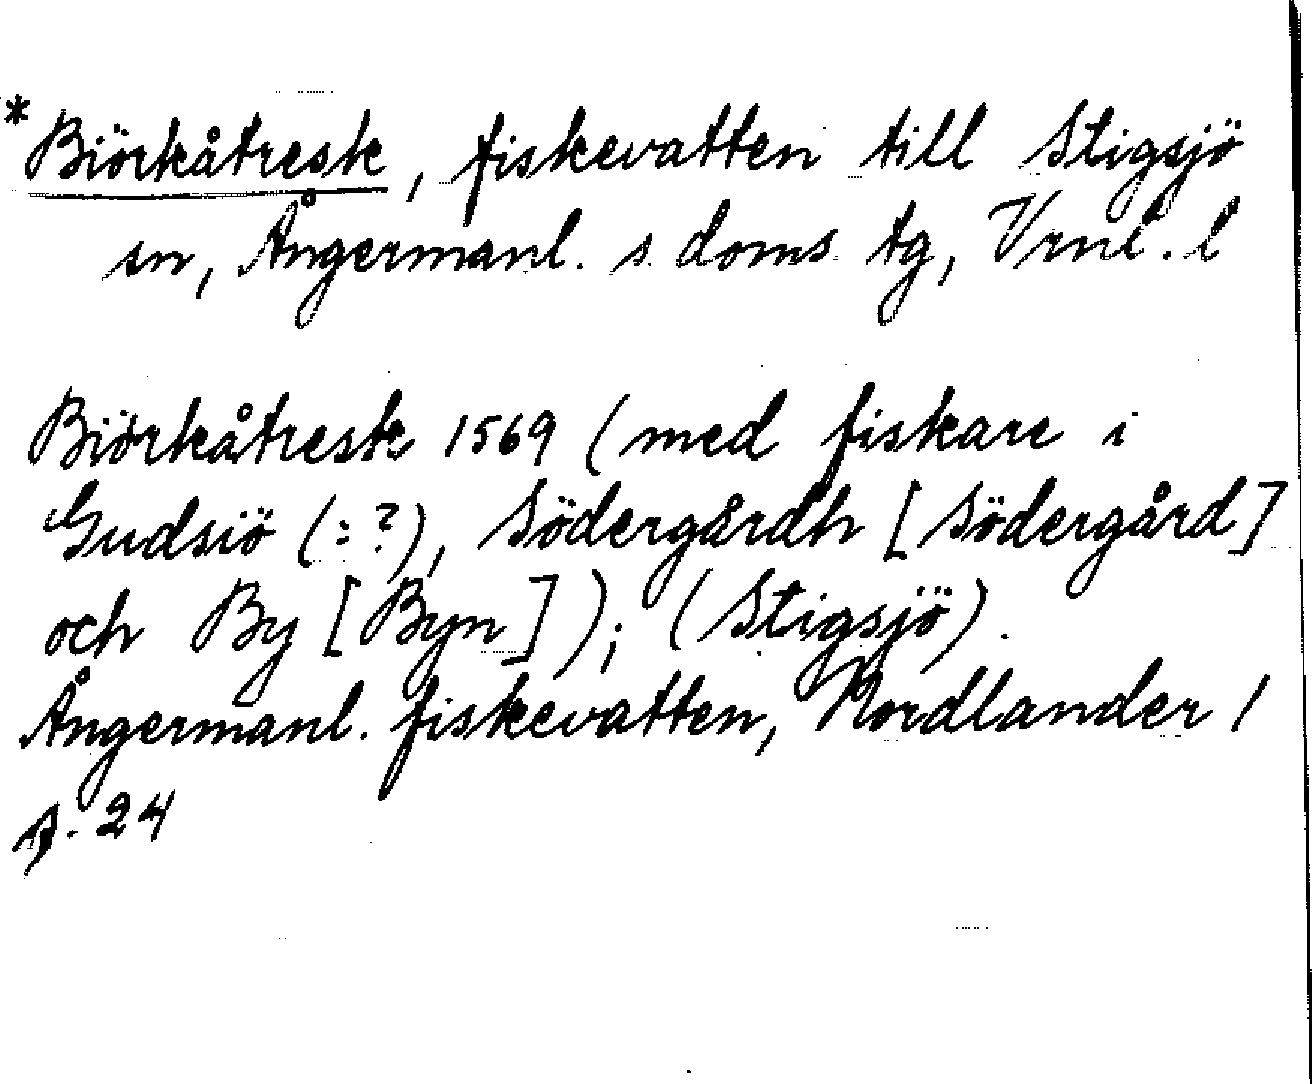 *Biörkåtresk, fiskevatten till Stigsjö
sn, Ångermanl. s. doms. tg, Vrnl. l
Biörkåtresk 1569 (med fiskare i
Gudsiö (:?), Södergårdh [Södergård]
och By [Byn]); (Stigsjö).
Ångermanl. fiskevatten, Nordlander 1
p. 24